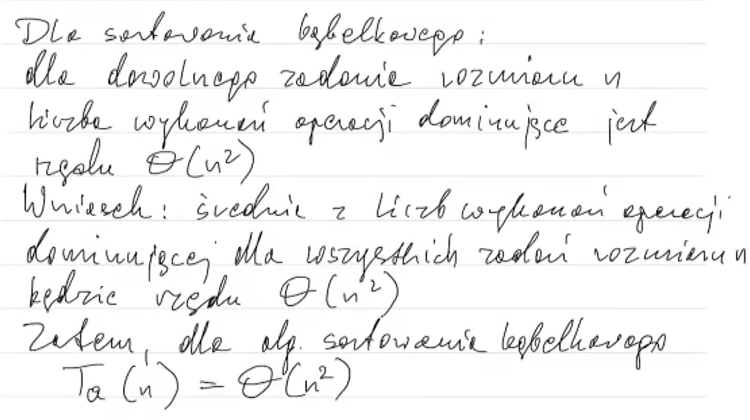 Dla sortowania bąbelkowego:
dla dowolnego zadania rozmiaru n
liczba wykonań operacji dominującej jest
rzędu Θ(n²)
Wniosek: średnia z liczb wykonań operacji
dominującej dla wszystkich zadań rozmiaru n
będzie rzędu Θ(n²)
Zatem, dla alg. sortowania bąbelkowego
Tₐ(n) = Θ(n²)